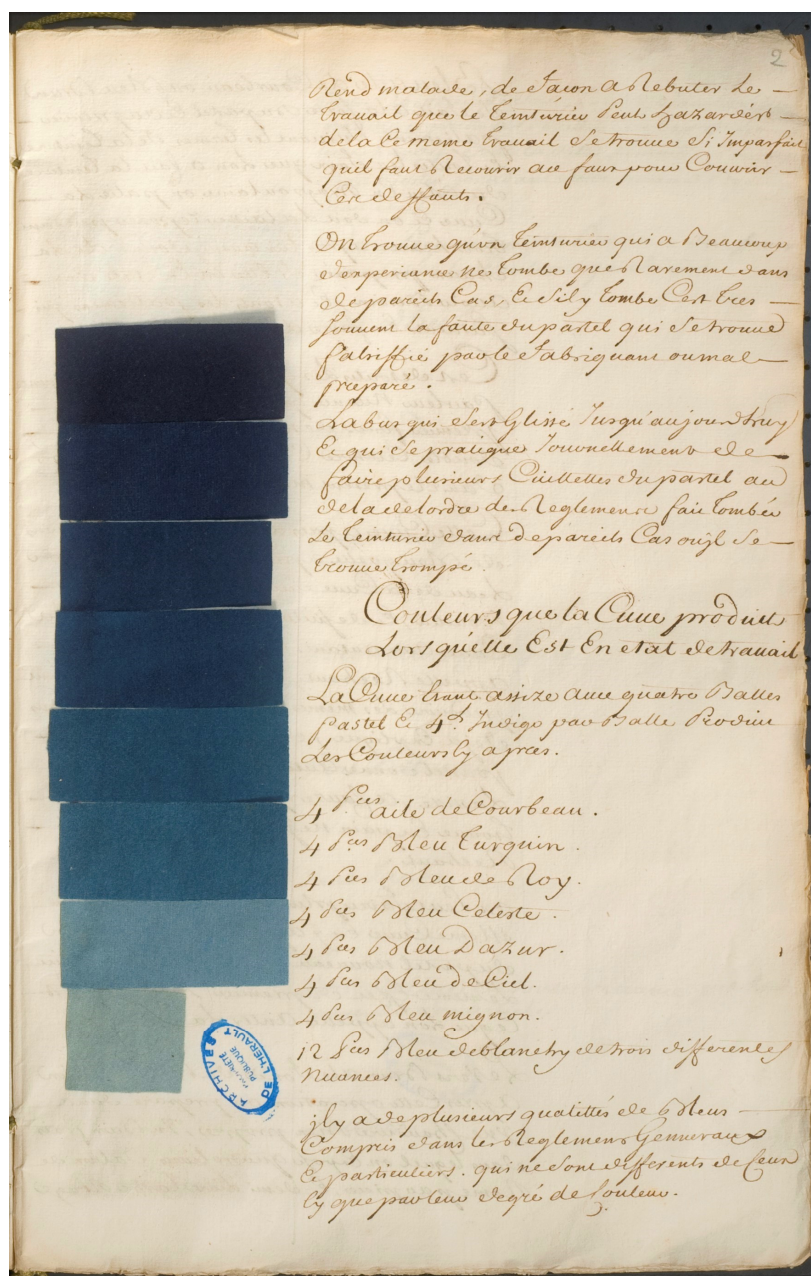 2
Rend malade, de facon a Rebuter Le
travail que le teinturier Peut hazarder
dela Ce meme travail Setrouve Si Imparfait
quil faut Recourir au faux pour Couvrir
Ces deffauts.
On trouve qu'un teinturier qui a Beaucoup
d'experiance ne tombe que Rarement dans
de pareils Cas, Et Sil y tombe C'est tres
souvent la faute du pastel qui Se trouve
falsiffié par le fabriquant ou mal
preparé.
Labus qui S'est Glissé Jusqu'aujourd'huy
Et qui Se pratique Journellement de
faire plusieurs Cuillettes du pastel au
dela de lordre des Reglements fait tomber
Le teinturier dans de pareils Cas ou jl Se
trouve trompé.
Couleurs que la Cuve produit
Lorsqu'elle Est En etat de travail
La Cuve Etant assize avec quatre Balles
pastel Et 4 ℔. Indigo par Balle Produit
Les Couleurs Cy apres.
4 Pces aile de Courbeau.
4 Pces Bleu turquin.
4 Pces Bleu de Roy.
4 Pces Bleu Celeste.
4 Pces Bleu Dazur.
4 Pces Bleu de Ciel.
4 Pces Bleu mignon.
12 Pces Bleu de blanchy de trois differentes
nuances.
jl y a de plusieurs qualittés de Bleus
Compris dans les Reglements Genneraux
Et particuliers. qui ne Sont differents de Ceux
Cy que par leur degré de Couleur.
ARCHIVES DE L'HÉRAULT
PROPRIÉTÉ
PUBLIQUE